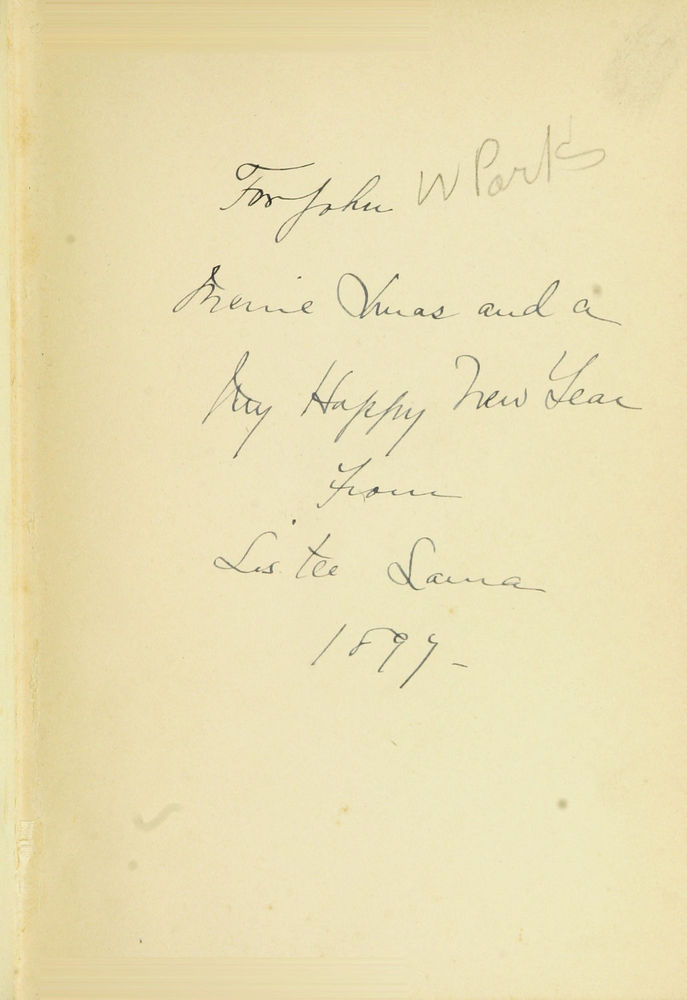 For John W Parks
Merrie Xmas and a
Happy New Year
from
Laura
1897-